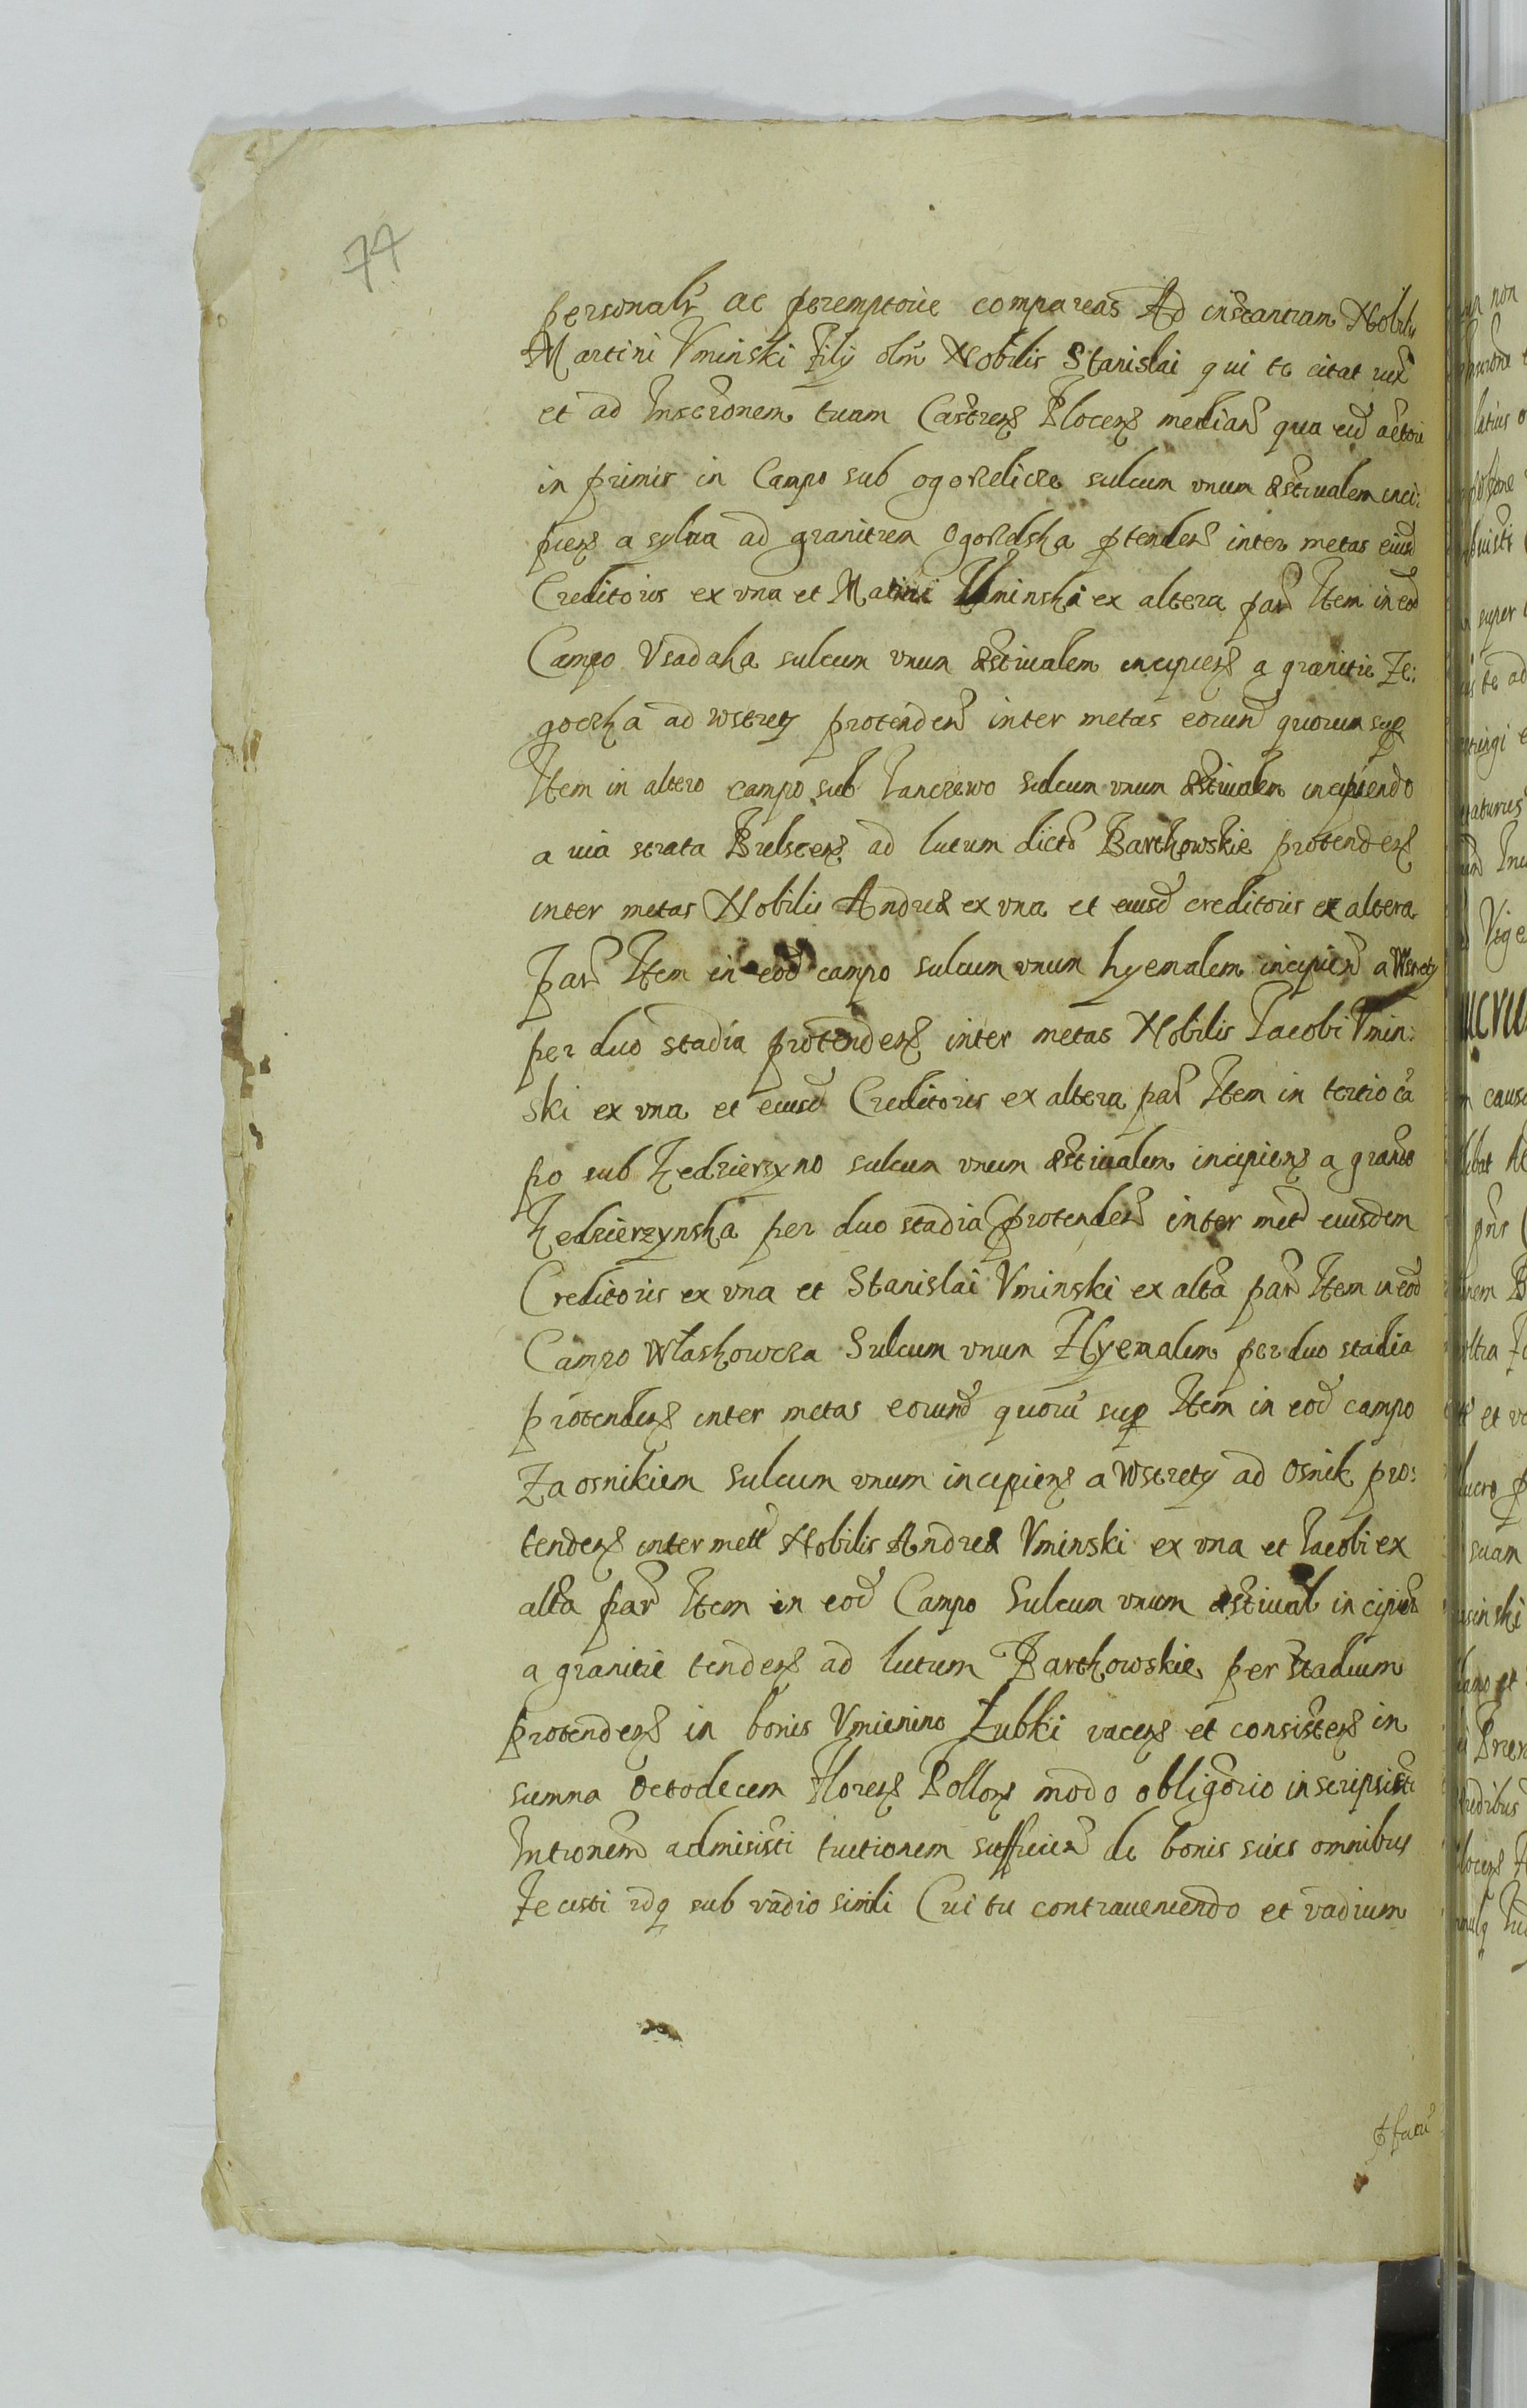 77
personalr ac peremptorie compareas Ad instantiam Nobilis
Martini Vminski Filij olim Nobilis Stanislai qui te citat iux
et ad Inscronem tuam Castren Plocen median qua eid actori
in primis in Campo sub ogorzelicze sulcum vnum æstiualem inci:
pien a sylua ad granitiem Ogorzelska ptenden inter metas eiusd
Creditoris ex vna et Matthiæ Uminski ex altera par Item in eod
Campo Vsadaka sulcum vnum æstiualem incipien a granitie Ze:
goczka ad wstręty protenden inter metas eorund quorum sup
Item in altero campo sub Janczewo sulcum vnum æstiualem incipiendo
a via strata Bielscen ad lutum dicto Barthowskie protenden
inter metas Nobilis Andreæ ex vna et eiusd creditoris ex altera
par Item in eod campo sulcum vnum hyemalem incipien a Wstręty
per duo stadia protenden inter metas Nobilis Jacobi Vmin:
ski ex vna et eiusd Creditoris ex altera par Item in tertio ca
po sub Kędzierzyno sulcum vnum æstiualem incipien a granitie
Kędzierzynska per duo stadia protenden inter met eiusdem
Creditoris ex vna et Stanislai Vminski ex alta par Item in eod
Campo Włashowcza Sulcum vnum Hyemalem per duo stadia
protenden inter metas eorund quoru sup Item in eod campo
Za osnikiem Sulcum vnum incipien a Wstręty ad Osnik pro:
tenden inter mett Nobilis Andreæ Vminski ex vna et Jacobi ex
alta par Item in eod Campo Sulcum vnum æstiual incipien
a granitie tenden ad lutum Barthowskie per stadium
protenden in bonis Vmienino Łubki iacen et consisten in
summa Octodecem Floren Pollon modo obligorio inscripsisti
Intronem admisisti tuitionem sufficien de bonis suis omnibus
Fecisti idq sub vadio simili Cui tu contraueniendo et vadium